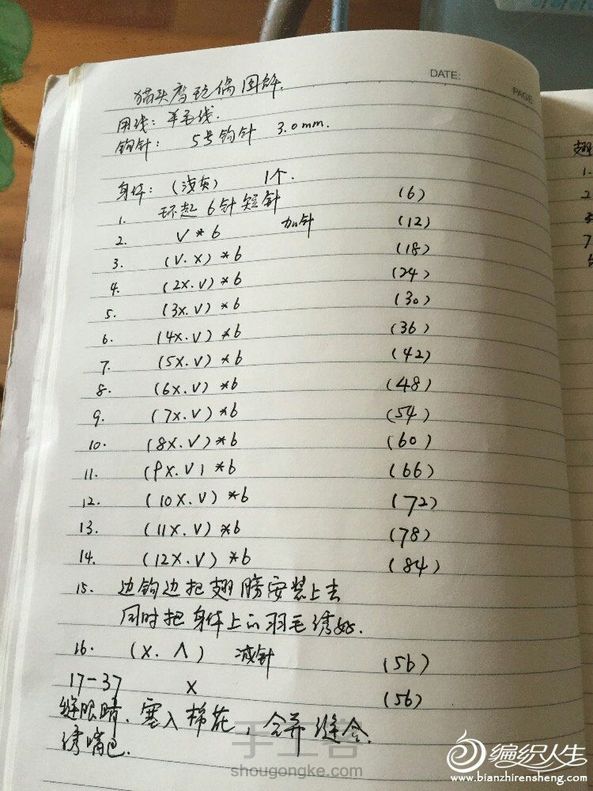 DATE:
PAGE:
猫头鹰玩偶图解.
用线: 羊毛线.
钩针: 5号钩针 3.0mm.
身体: (浅灰) 1个.
1. 环起6针短针 (6)
2. V*6 加针 (12)
3. (V.X)*6 (18)
4. (2X.V)*6 (24)
5. (3X.V)*6 (30)
6. (4X.V)*6 (36)
7. (5X.V)*6 (42)
8. (6X.V)*6 (48)
9. (7X.V)*6 (54)
10. (8X.V)*6 (60)
11. (9X.V)*6 (66)
12. (10X.V)*6 (72)
13. (11X.V)*6 (78)
14. (12X.V)*6 (84)
15. 边钩边把翅膀安装上去
同时把身体上的羽毛绣好.
16. (X.Λ) 减针 (56)
17-37 X (56)
缝眼睛, 塞入棉花, 合并缝合.
绣嘴巴.
翅
1.
2
3
7
手工客
shougongke.com
编织人生
www.bianzhirensheng.com